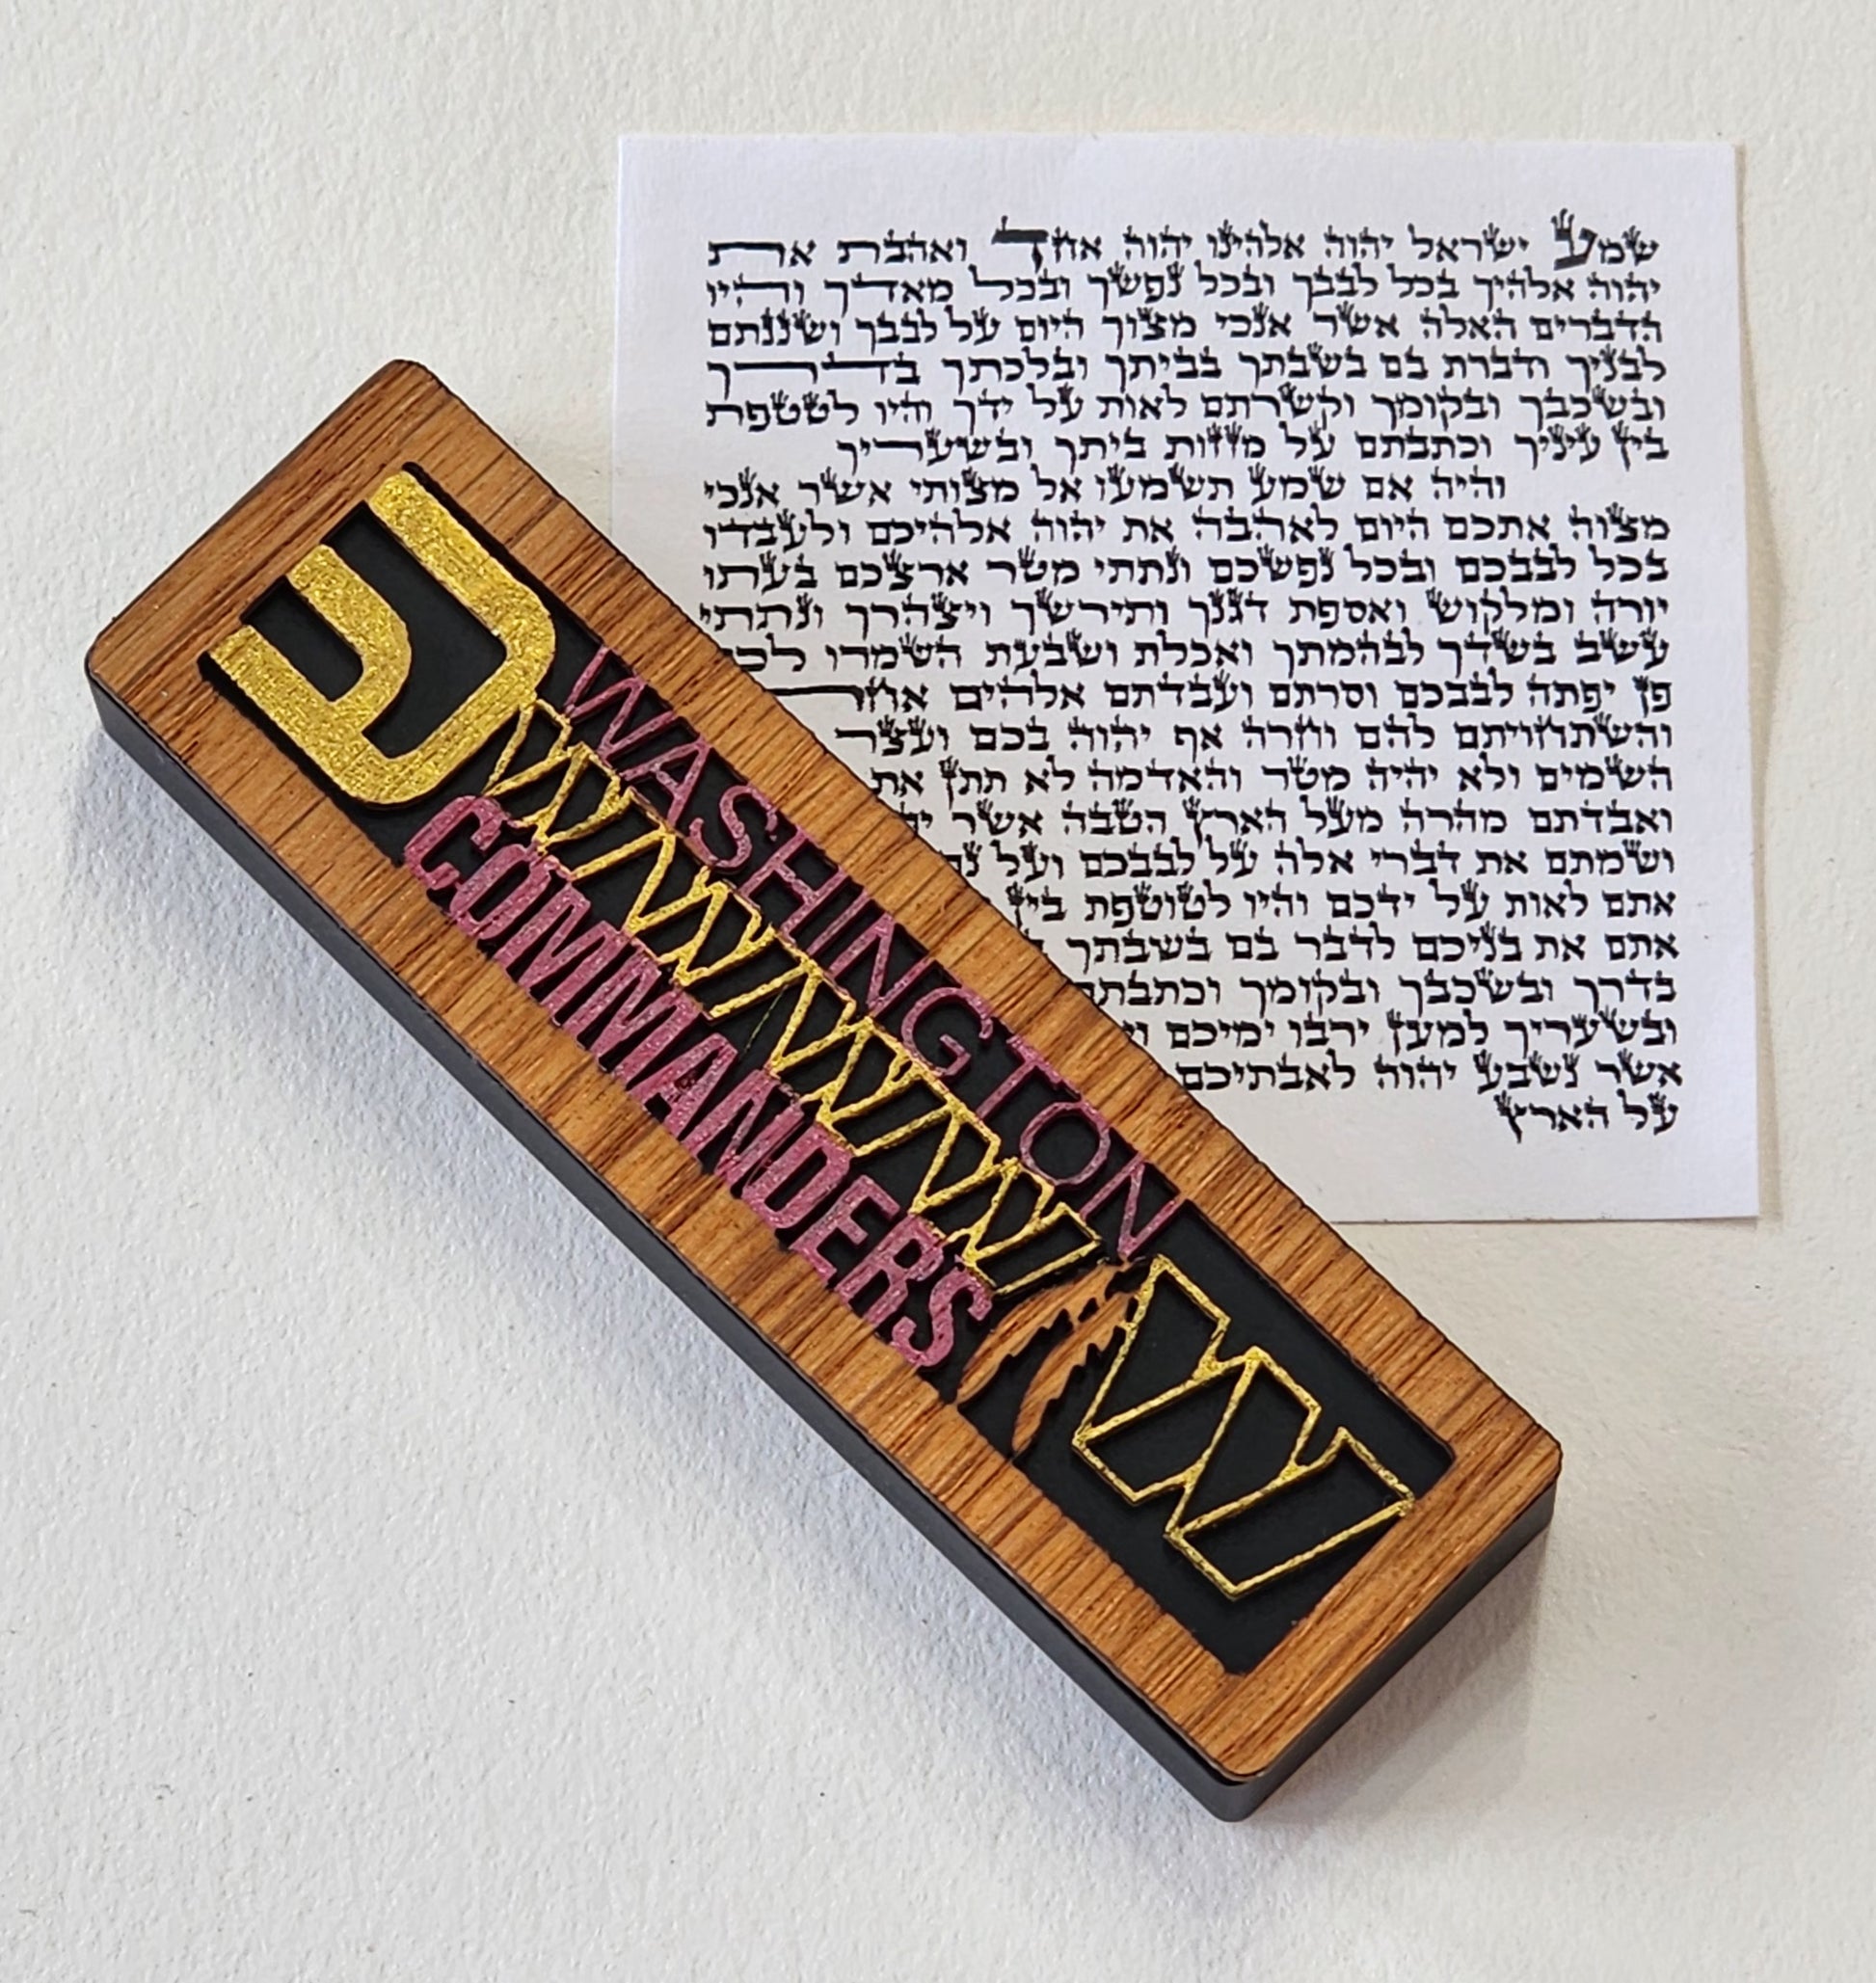 שמע ישראל יהוה אלהינו יהוה אחד ואהבת את
יהוה אלהיך בכל לבבך ובכל נפשך ובכל מאדך והיו
הדברים האלה אשר אנכי מצוך היום על לבבך ושננתם
לבניך ודברת בם בשבתך בביתך ובלכתך בדרך
ובשכבך ובקומך וקשרתם לאות על ידך והיו לטטפת
בין עיניך וכתבתם על מזזות ביתך ובשעריך
והיה אם שמע תשמעו אל מצותי אשר אנכי
מצוה אתכם היום לאהבה את יהוה אלהיכם ולעבדו
בכל לבבכם ובכל נפשכם ונתתי מטר ארצכם בעתו
יורה ומלקוש ואספת דגנך ותירשך ויצהרך ונתתי
עשב בשדך לבהמתך ואכלת ושבעת השמרו
פן יפתה לבבכם וסרתם ועבדתם אלהים
והשתחויתם להם וחרה אף יהוה בכם ועצר
השמים ולא יהיה מטר והאדמה לא תתן את
ואבדתם מהרה מעל הארץ הטבה אשר
ושמתם את דברי אלה על לבבכם ועל
אתם לאות על ידכם והיו לטוטפת בין
אתם את בניכם לדבר בם בשבתך
בדרך ובשכבך ובקומך
ובשעריך למען ירבו ימיכם
אשר נשבע יהוה לאבתיכם
על הארץ
ש
WASHINGTON
COMMANDERS
W